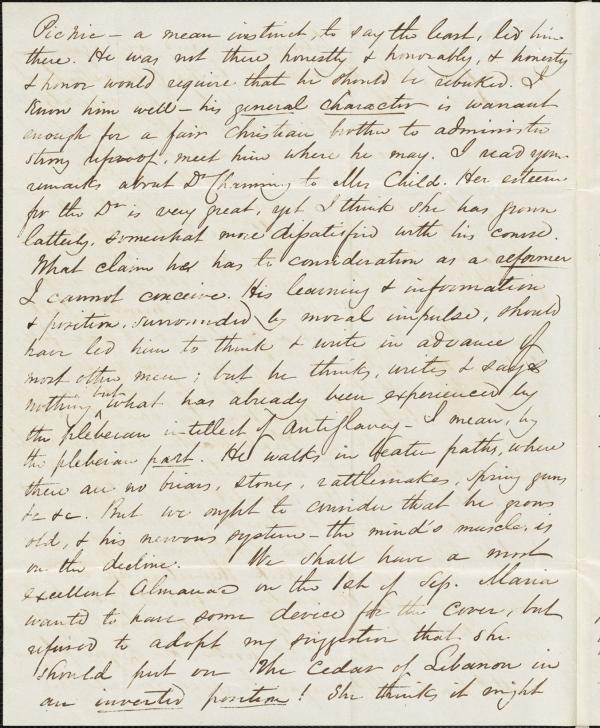 Picnic – a mean instinct, to say the least, led him
there. He was not there honestly & honorably, & honesty
& honor would require that he should be rebuked. I
know him well – his general character is warrant
enough for a fair Christian brother to administer
strong reproof, meet him where he may. I read your
remarks about Dr Channing to Mrs Child. Her esteem
for the Dr is very great, yet I think she has grown
latterly, somewhat more dissatisfied with his course.
What claim he has to consideration as a reformer
I cannot conceive. His learning & information
& position, surrounded by moral impulse, should
have led him to think & write in advance of
most other men; but he thinks, writes & says
nothing but what has already been experienced by
the plebeian intellect of Antislavery – I mean, by
the plebeian part. He walks in beaten paths, where
there are no briars, stones, rattlesnakes, spring guns
&c &c. But we ought to consider that he grows
old, & his nervous system – the mind's muscle, is
on the decline. We shall have a most
excellent Almanac on the 1st of Sep. Maria
wanted to have some device for the cover, but
refused to adopt my suggestion that she
should put on the Cedar of Lebanon in
an inverted position! She thinks it might